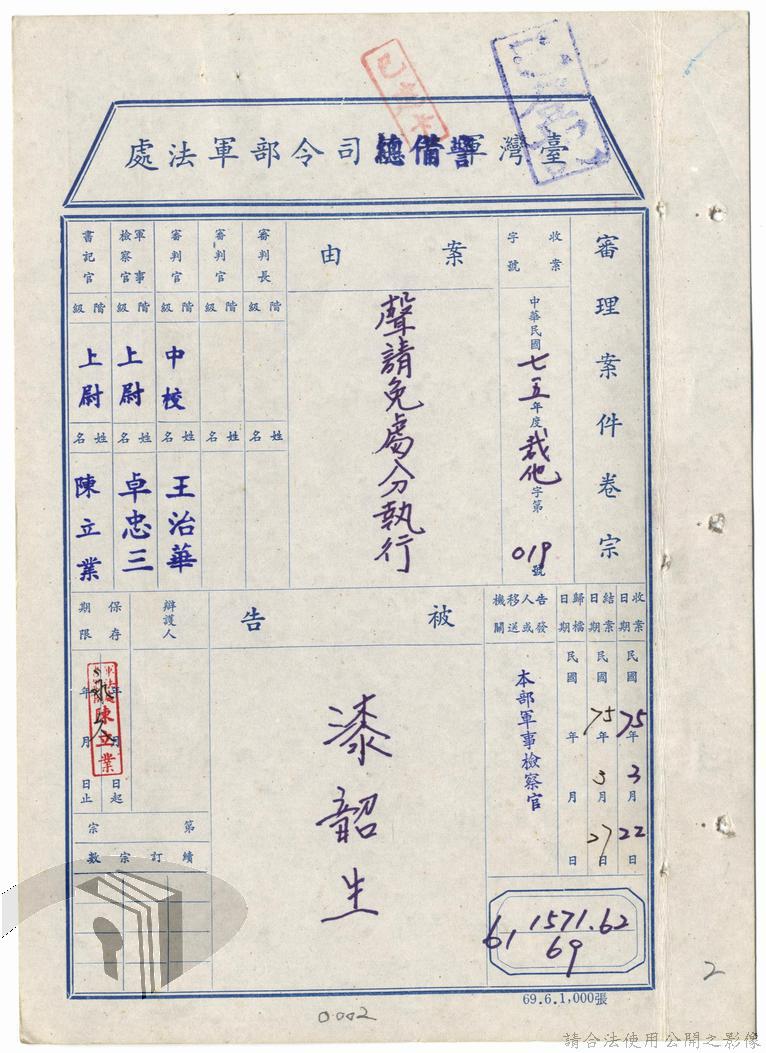 臺灣警備總司令部軍法處
審理案件卷宗
收案字號
中華民國七五年度裁他字第019號
案由
聲請免處分執行
審判長
階級
姓名
審判官
階級
姓名
審判官
階級
中校
姓名
王治華
軍事檢察官
階級
上尉
姓名
卓忠三
書記官
階級
上尉
姓名
陳立業
收案日期
民國75年3月22日
結案日期
民國75年3月27日
歸檔日期
民國 年 月 日
告發人或移送機關
本部軍事檢察官
被告
漆韶生
辯護人
保存期限
年 月 日起
年 月 日止
陳立業
第 宗
續訂宗數
61
1571.62
69
69.6.1,000張
0002
2
請合法使用公開之影像